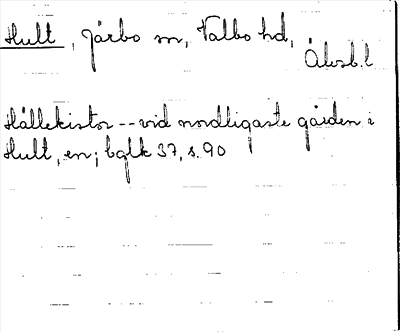 Hult, Järbo sn, Valbo hd,
Älvsb. l
Hällekistor -- vid nordligaste gården i
Hult, en; bglk 37, s. 90